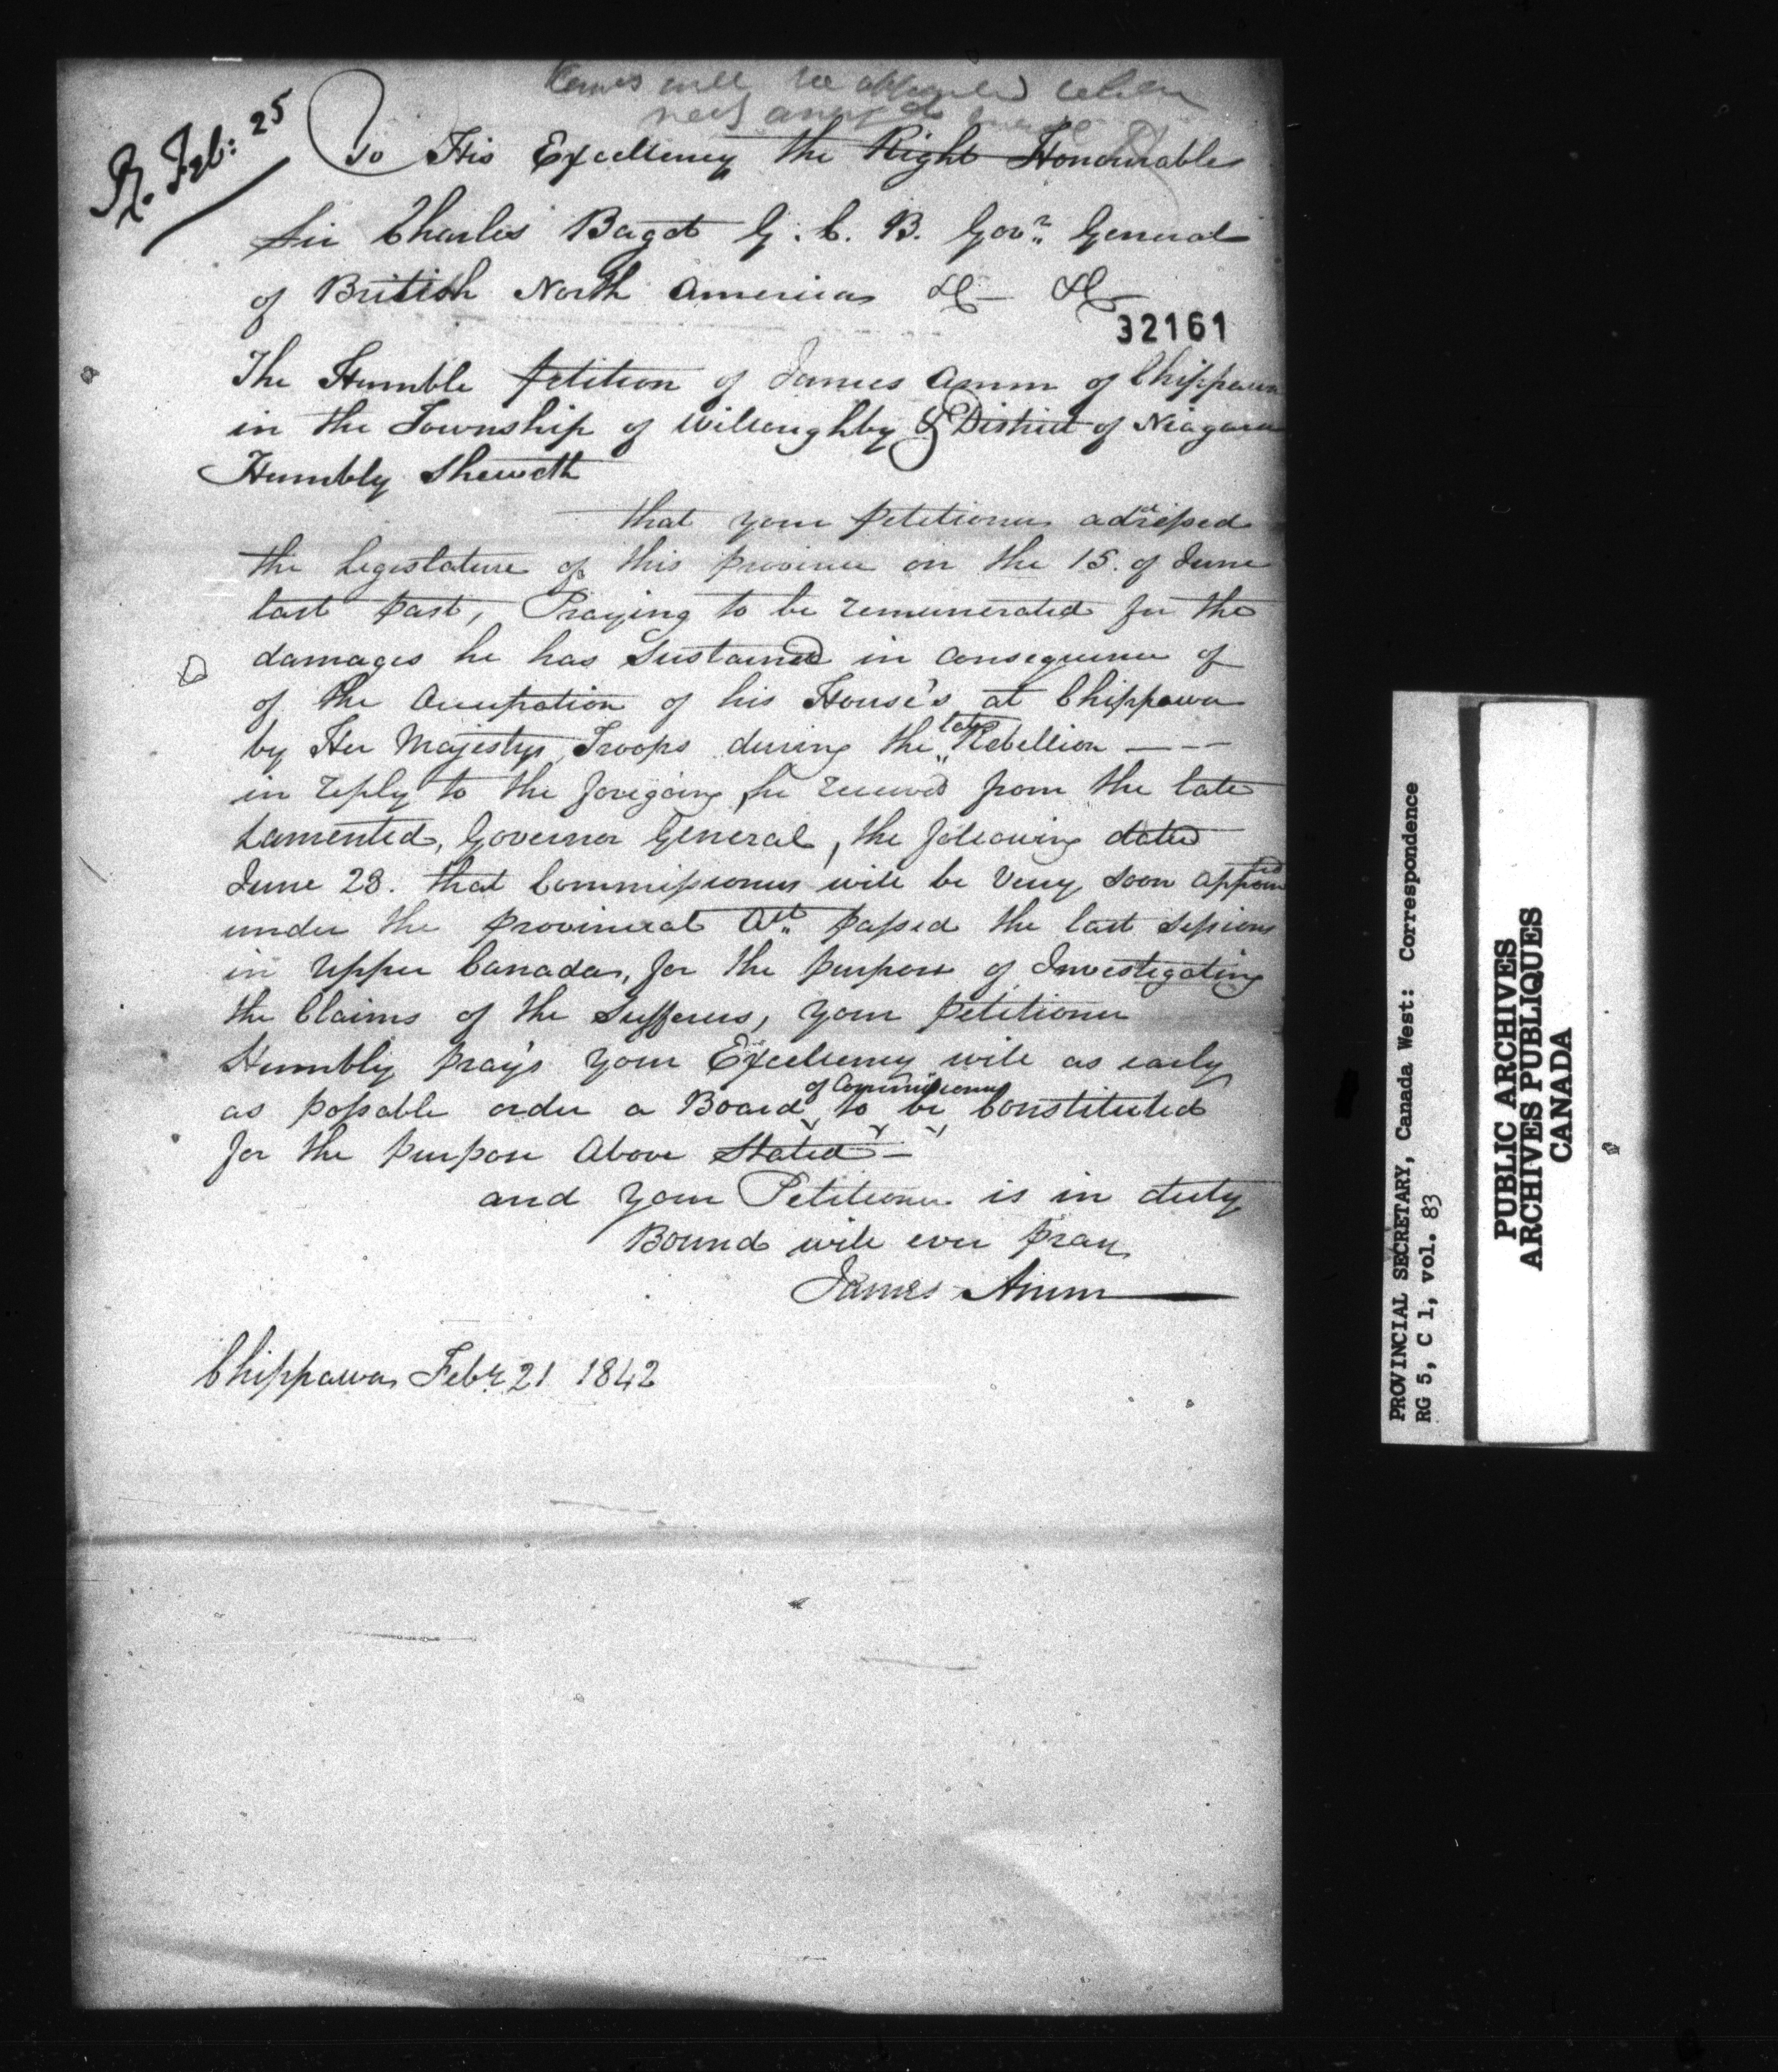 R. Feb: 25
will be
To His Excellency the Right Honourable
Sir Charles Bagot G. C. B. Govr. General
of British North America &c &c
32161
The Humble Petition of James Amm of Chippawa
in the Township of Willoughby & District of Niagara
Humbly Sheweth
that your Petitioner adressed
the Legeslature of this Province on the 15. of June
last past, Praying to be remunerated for the
damages he has Sustained in Consequence of
of the Occupation of his House's at Chippawa
by Her Majestys Troops during the late Rebellion ---
in reply to the foregoing he received from the late
Lamented, Governor General, the following dated
June 28. that Commissioners will be Very soon appointed
under the Provincial Act. passed the last Sessions
in Upper Canada, for the purpose of Investigating
the Claims of the Sufferers, your Petitioner
Humbly pray's your Excellency will as early
as possable order a Board of Commissioners to be Constituted
for the purpose Above Stated —
and your Petitioner is in duty
Bound will ever pray
James Amm
Chippawa Feby 21 1842
PROVINCIAL SECRETARY, Canada West: Correspondence
RG 5, C 1, vol. 83
PUBLIC ARCHIVES
ARCHIVES PUBLIQUES
CANADA